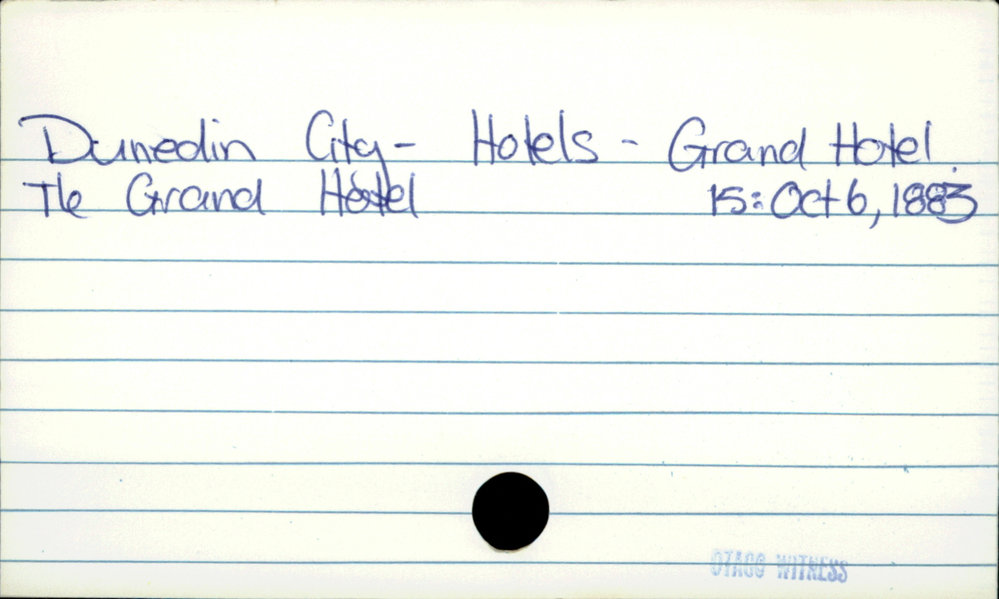 Dunedin City - Hotels - Grand Hotel.
The Grand Hotel 15: Oct 6, 1883
OTAGO WITNESS